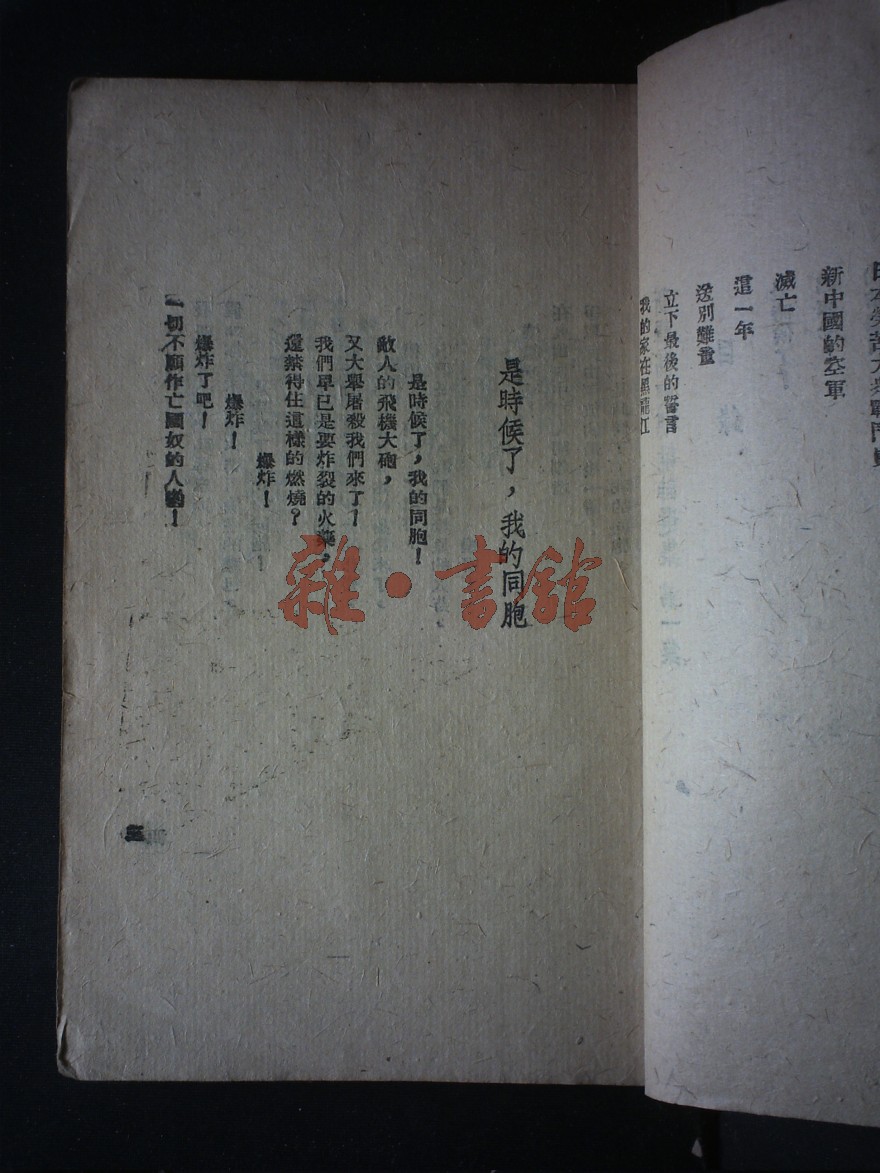 新中國的空軍
滅亡
這一年
送別難童
立下最後的誓言
我的家在黑龍江
是時候了，我的同胞
是時候了，我的同胞！
敵人的飛機大砲，
又大舉屠殺我們來了！
我們早已是要炸裂的火藥，
還禁得住這樣的燃燒？
爆炸！
爆炸！
爆炸了吧！
一切不願作亡國奴的人們！
三
雜·書館